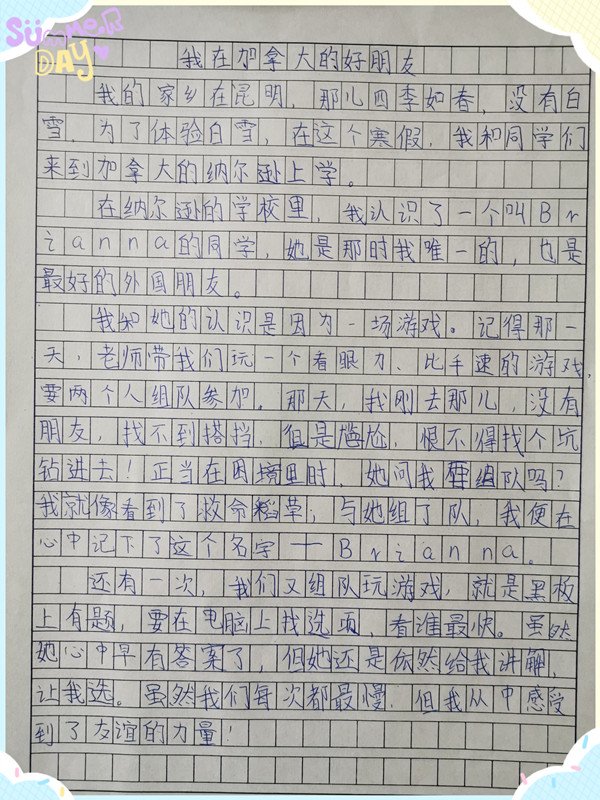 SUMMER
DAY
我在加拿大的好朋友
我的家乡在昆明，那儿四季如春，没有白
雪，为了体验白雪，在这个寒假，我和同学们
来到加拿大的纳尔逊上学。
在纳尔逊的学校里，我认识了一个叫Br
ianna的同学，她是那时我唯一的，也是
最好的外国朋友。
我和她的认识是因为一场游戏。记得那一
天，老师带我们玩一个看眼力、比手速的游戏，
要两个人组队参加。那天，我刚去那儿，没有
朋友，找不到搭挡，很是尴尬，恨不得找个坑
钻进去！正当在困境里时，她问我组队吗？
我就像看到了救命稻草；与她组了队，我便在
心中记下了这个名字——Brianna。
还有一次，我们又组队玩游戏，就是黑板
上有题，要在电脑上找选项，看谁最快。虽然
她心中早有答案了，但她还是依然给我讲解，
让我选。虽然我们每次都最慢，但我从中感受
到了友谊的力量！